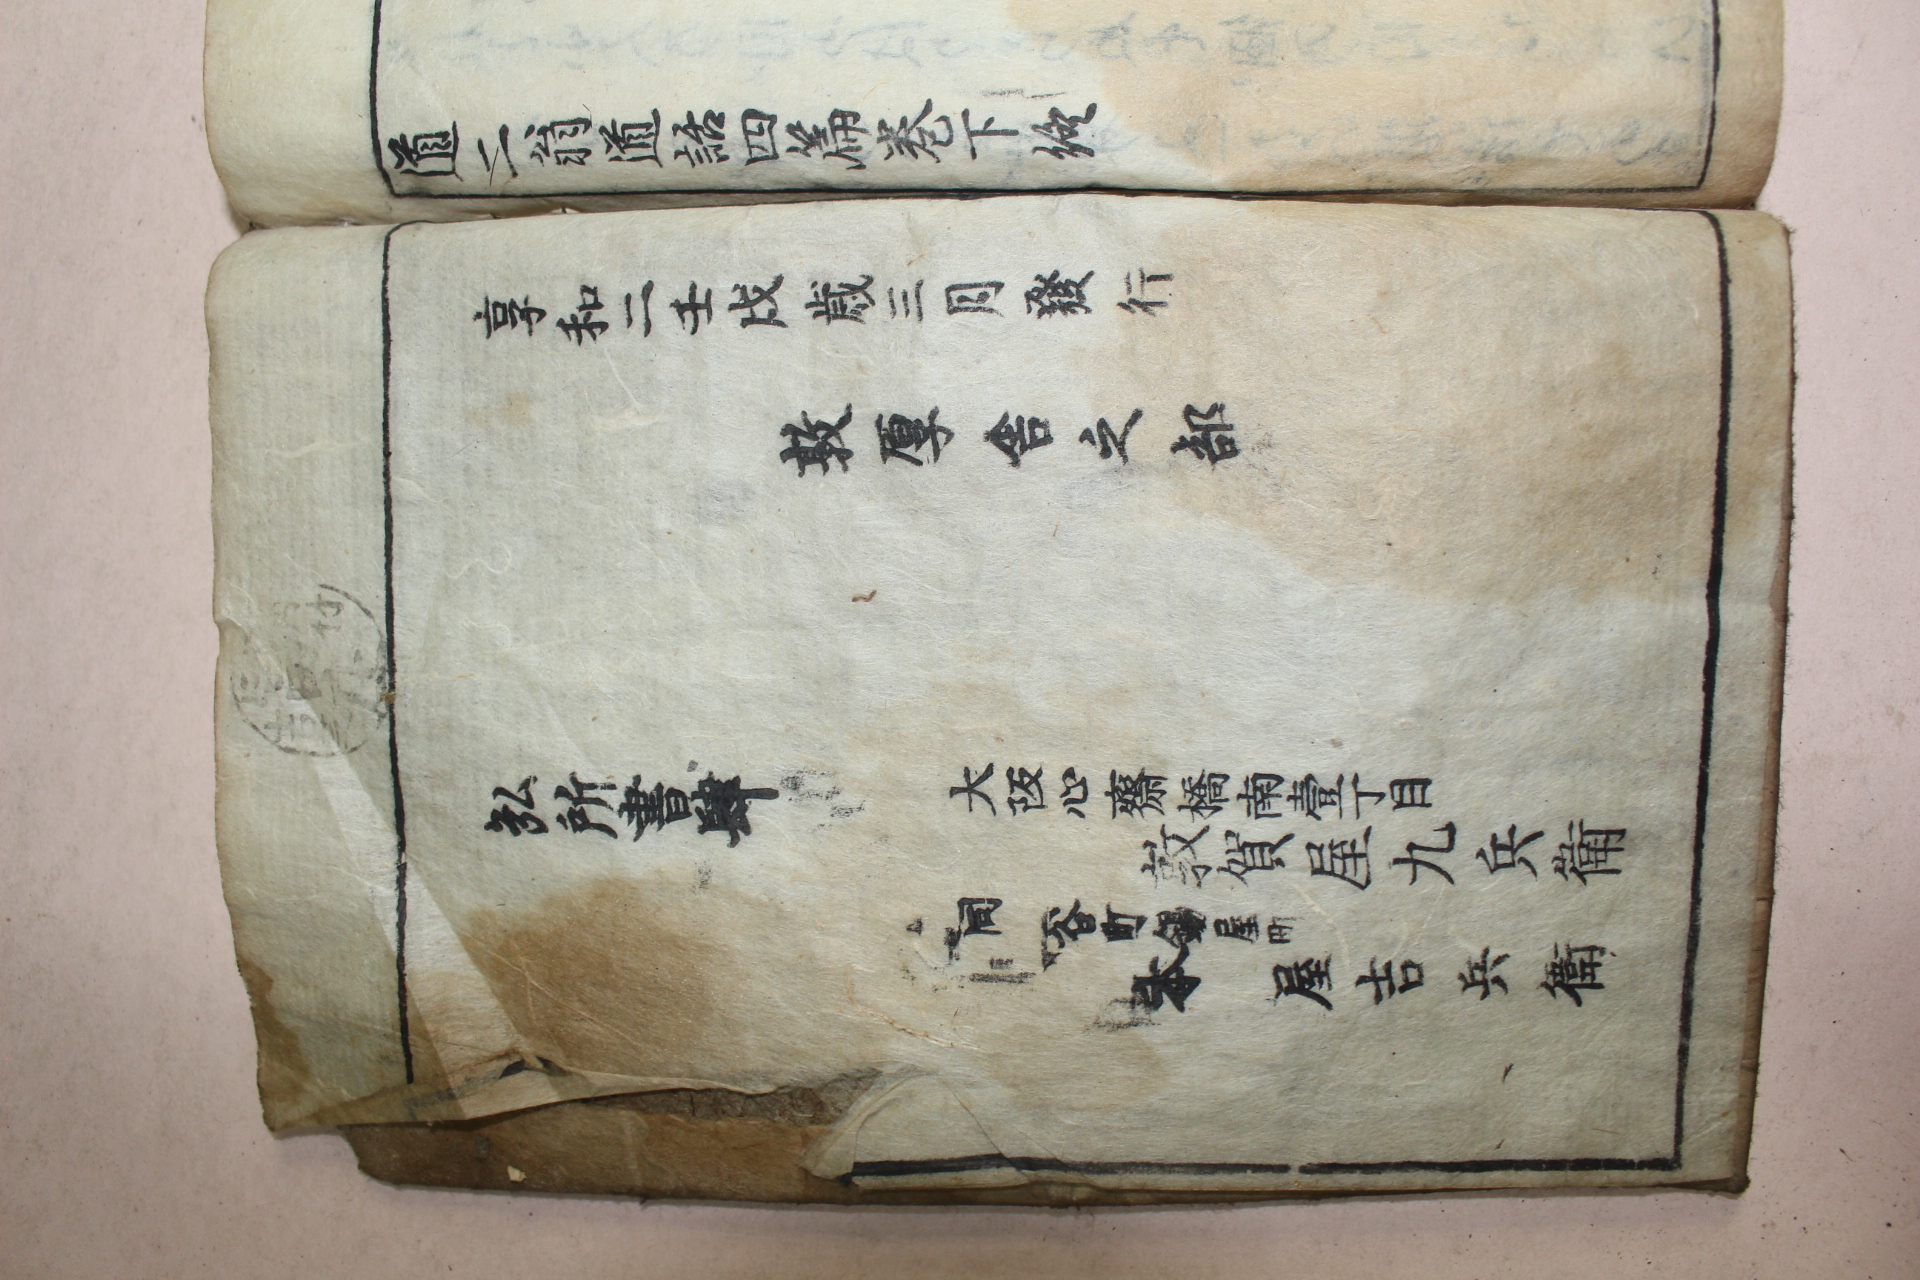 道二翁道話四篇巻下終
享和二壬戌歳三月發行
敦厚舎之部
弘所書肆
大阪心齋橋南壹丁目
敦賀屋九兵衛
同 谷町錫屋町
本屋吉兵衛